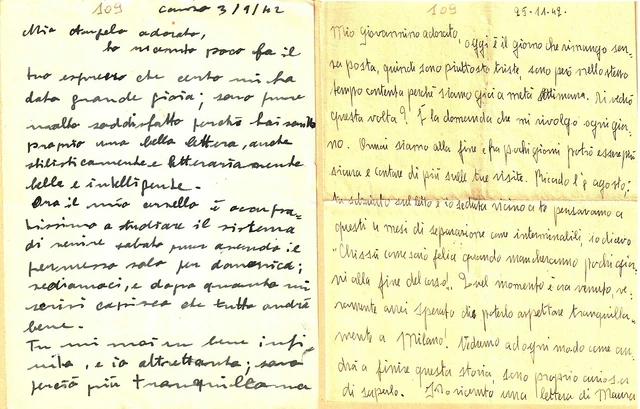 109
Cauro 3/9/42
Mia Angela adorata,
ho ricevuto poco fa il
tuo espresso che certo mi ha
dato grande gioia; sono pure
molto soddisfatto perchè hai scritto
proprio una bella lettera, anche
stilisticamente e letterariamente
bella e intelligente.
Ora il mio cervello è occupa-
tissimo a studiare il sistema
di venire sabato pur avendo il
permesso solo per domenica;
vediamoci, e dopo quanto mi
scrivi capisco che tutto andrà
bene.
Tu mi vuoi un bene infi-
nito, e io altrettanto; sarò
perciò più tranquillamen
109
25-11-42.
Mio Giovannino adorato,
oggi è il giorno che rimango sen-
za posta, quindi sono piuttosto triste, sono però nello stesso
tempo contenta perchè siamo già a metà settimana. Ti vedrò
questa volta? È la domanda che mi rivolgo ogni gior-
no. Ormai siamo alla fine e fra pochi giorni potrò essere più
sicura e contare di più sulle tue visite. Ricordo l'8 agosto;
tu sdraiato sul letto e io seduta vicino a te pensavamo a
questi 4 mesi di separazione come interminabili, io dicevo
"Chissà come sarò felice quando mancheranno pochi gior-
ni alla fine del corso". Quel momento è ora venuto, ve-
ramente avrei sperato di poterlo aspettare tranquilla-
mente a Milano! Vedremo ad ogni modo come an-
drà a finire questa storia, sono proprio curiosa
di saperlo. Ho ricevuto una lettera di Maura